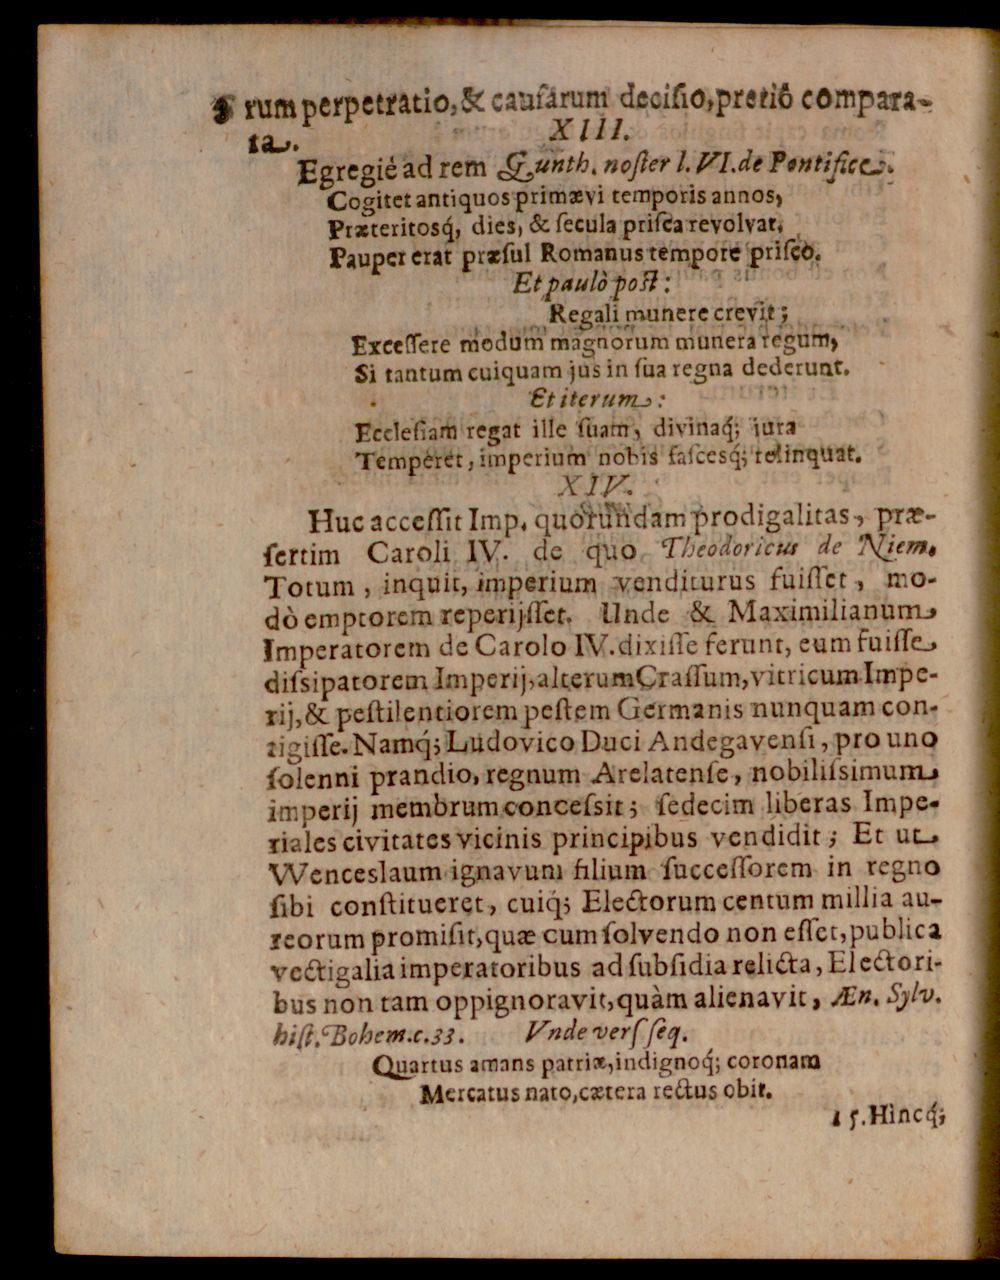 rum perpetratio, & cauſarum deciſio, pretiô compara-
ta.
XIII.
Egregié ad rem Gunth. noſter l. VI. de Pontifice.
Cogitet antiquos primævi temporis annos,
Præteritosq́, dies, & ſecula priſca revolvat.
Pauper erat præſul Romanus tempore priſco.
Et paulò poſt:
Regali munere crevit;
Exceſſere modum magnorum munera regum,
Si tantum cuiquam jus in ſua regna dederunt.
Et iterum:
Eccleſiam regat ille ſuam, divinaq́; jura
Temperet, imperium nobis faſcesq́; relinquat.
XIV.
Huc acceſſit Imp. quorundam prodigalitas, præ-
ſertim Caroli IV. de quo Theodoricus de Niem.
Totum, inquit, imperium venditurus fuiſſet, mo-
dò emptorem reperijſſet. Unde & Maximilianum
Imperatorem de Carolo IV. dixiſſe ferunt, eum fuiſſe
diſsipatorem Imperij, alterum Craſſum, vitricum Impe-
rij, & peſtilentiorem peſtem Germanis nunquam con-
tigiſſe. Namq́; Ludovico Duci Andegavenſi, pro uno
ſolenni prandio, regnum Arelatenſe, nobiliſsimum
imperij membrum conceſsit; ſedecim liberas Impe-
riales civitates vicinis principibus vendidit; Et ut
Wenceslaum ignavum filium ſucceſſorem in regno
ſibi conſtitueret, cuiq́; Electorum centum millia au-
reorum promiſit, quæ cum ſolvendo non eſſet, publica
vectigalia imperatoribus ad ſubſidia relicta, Electori-
bus non tam oppignoravit, quàm alienavit, Æn. Sylv.
hiſt. Bohem. c. 33. Vnde verſ ſeq.
Quartus amans patriæ, indignoq́; coronam
Mercatus nato, cætera rectus obit.
15. Hincq́;